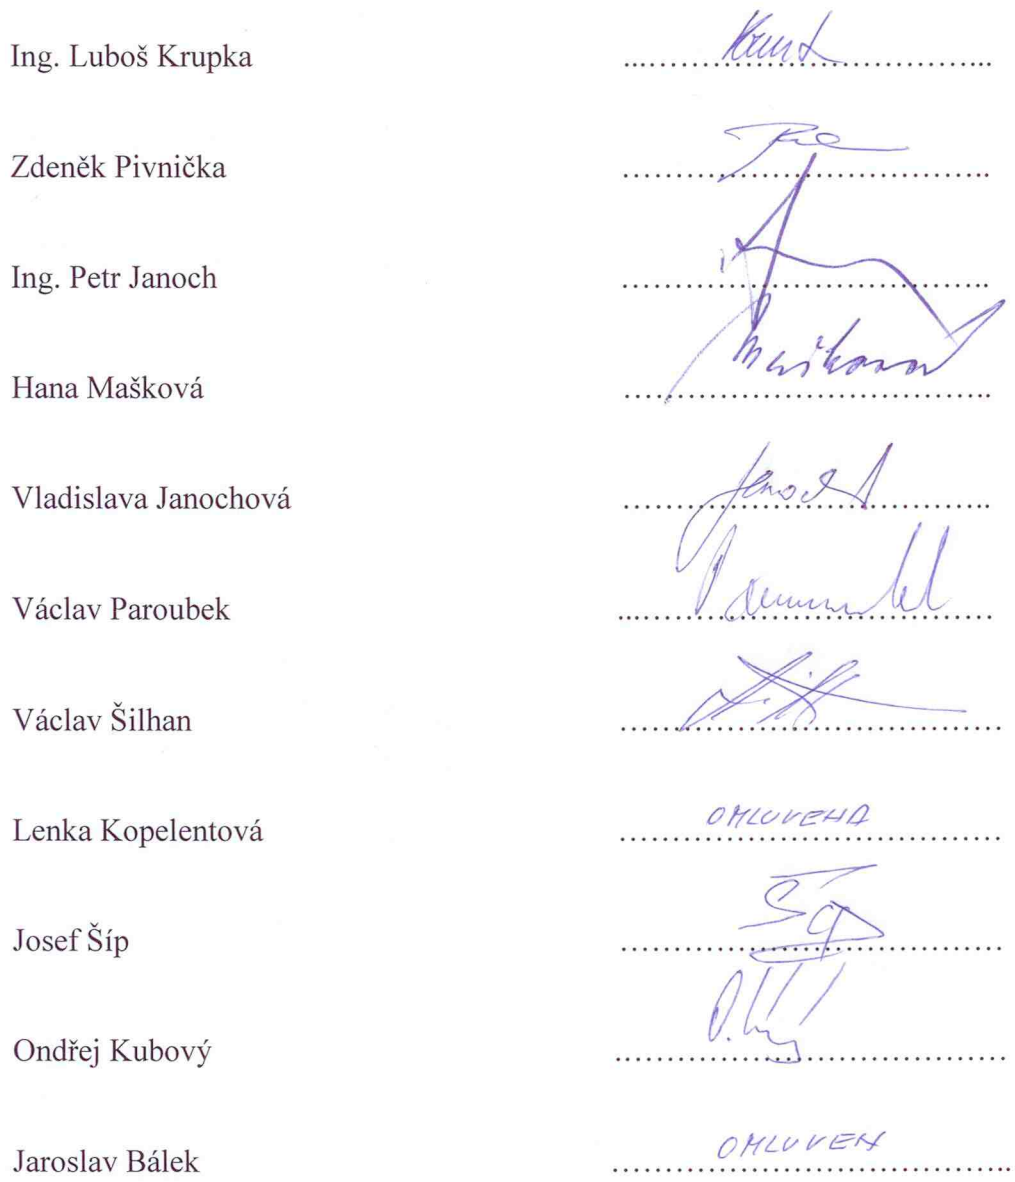 Ing. Luboš Krupka
Zdeněk Pivnička
Ing. Petr Janoch
Hana Mašková
Vladislava Janochová
Václav Paroubek
Václav Šilhan
Lenka Kopelentová OMLUVENA
Josef Šíp
Ondřej Kubový
Jaroslav Bálek OMLUVEN